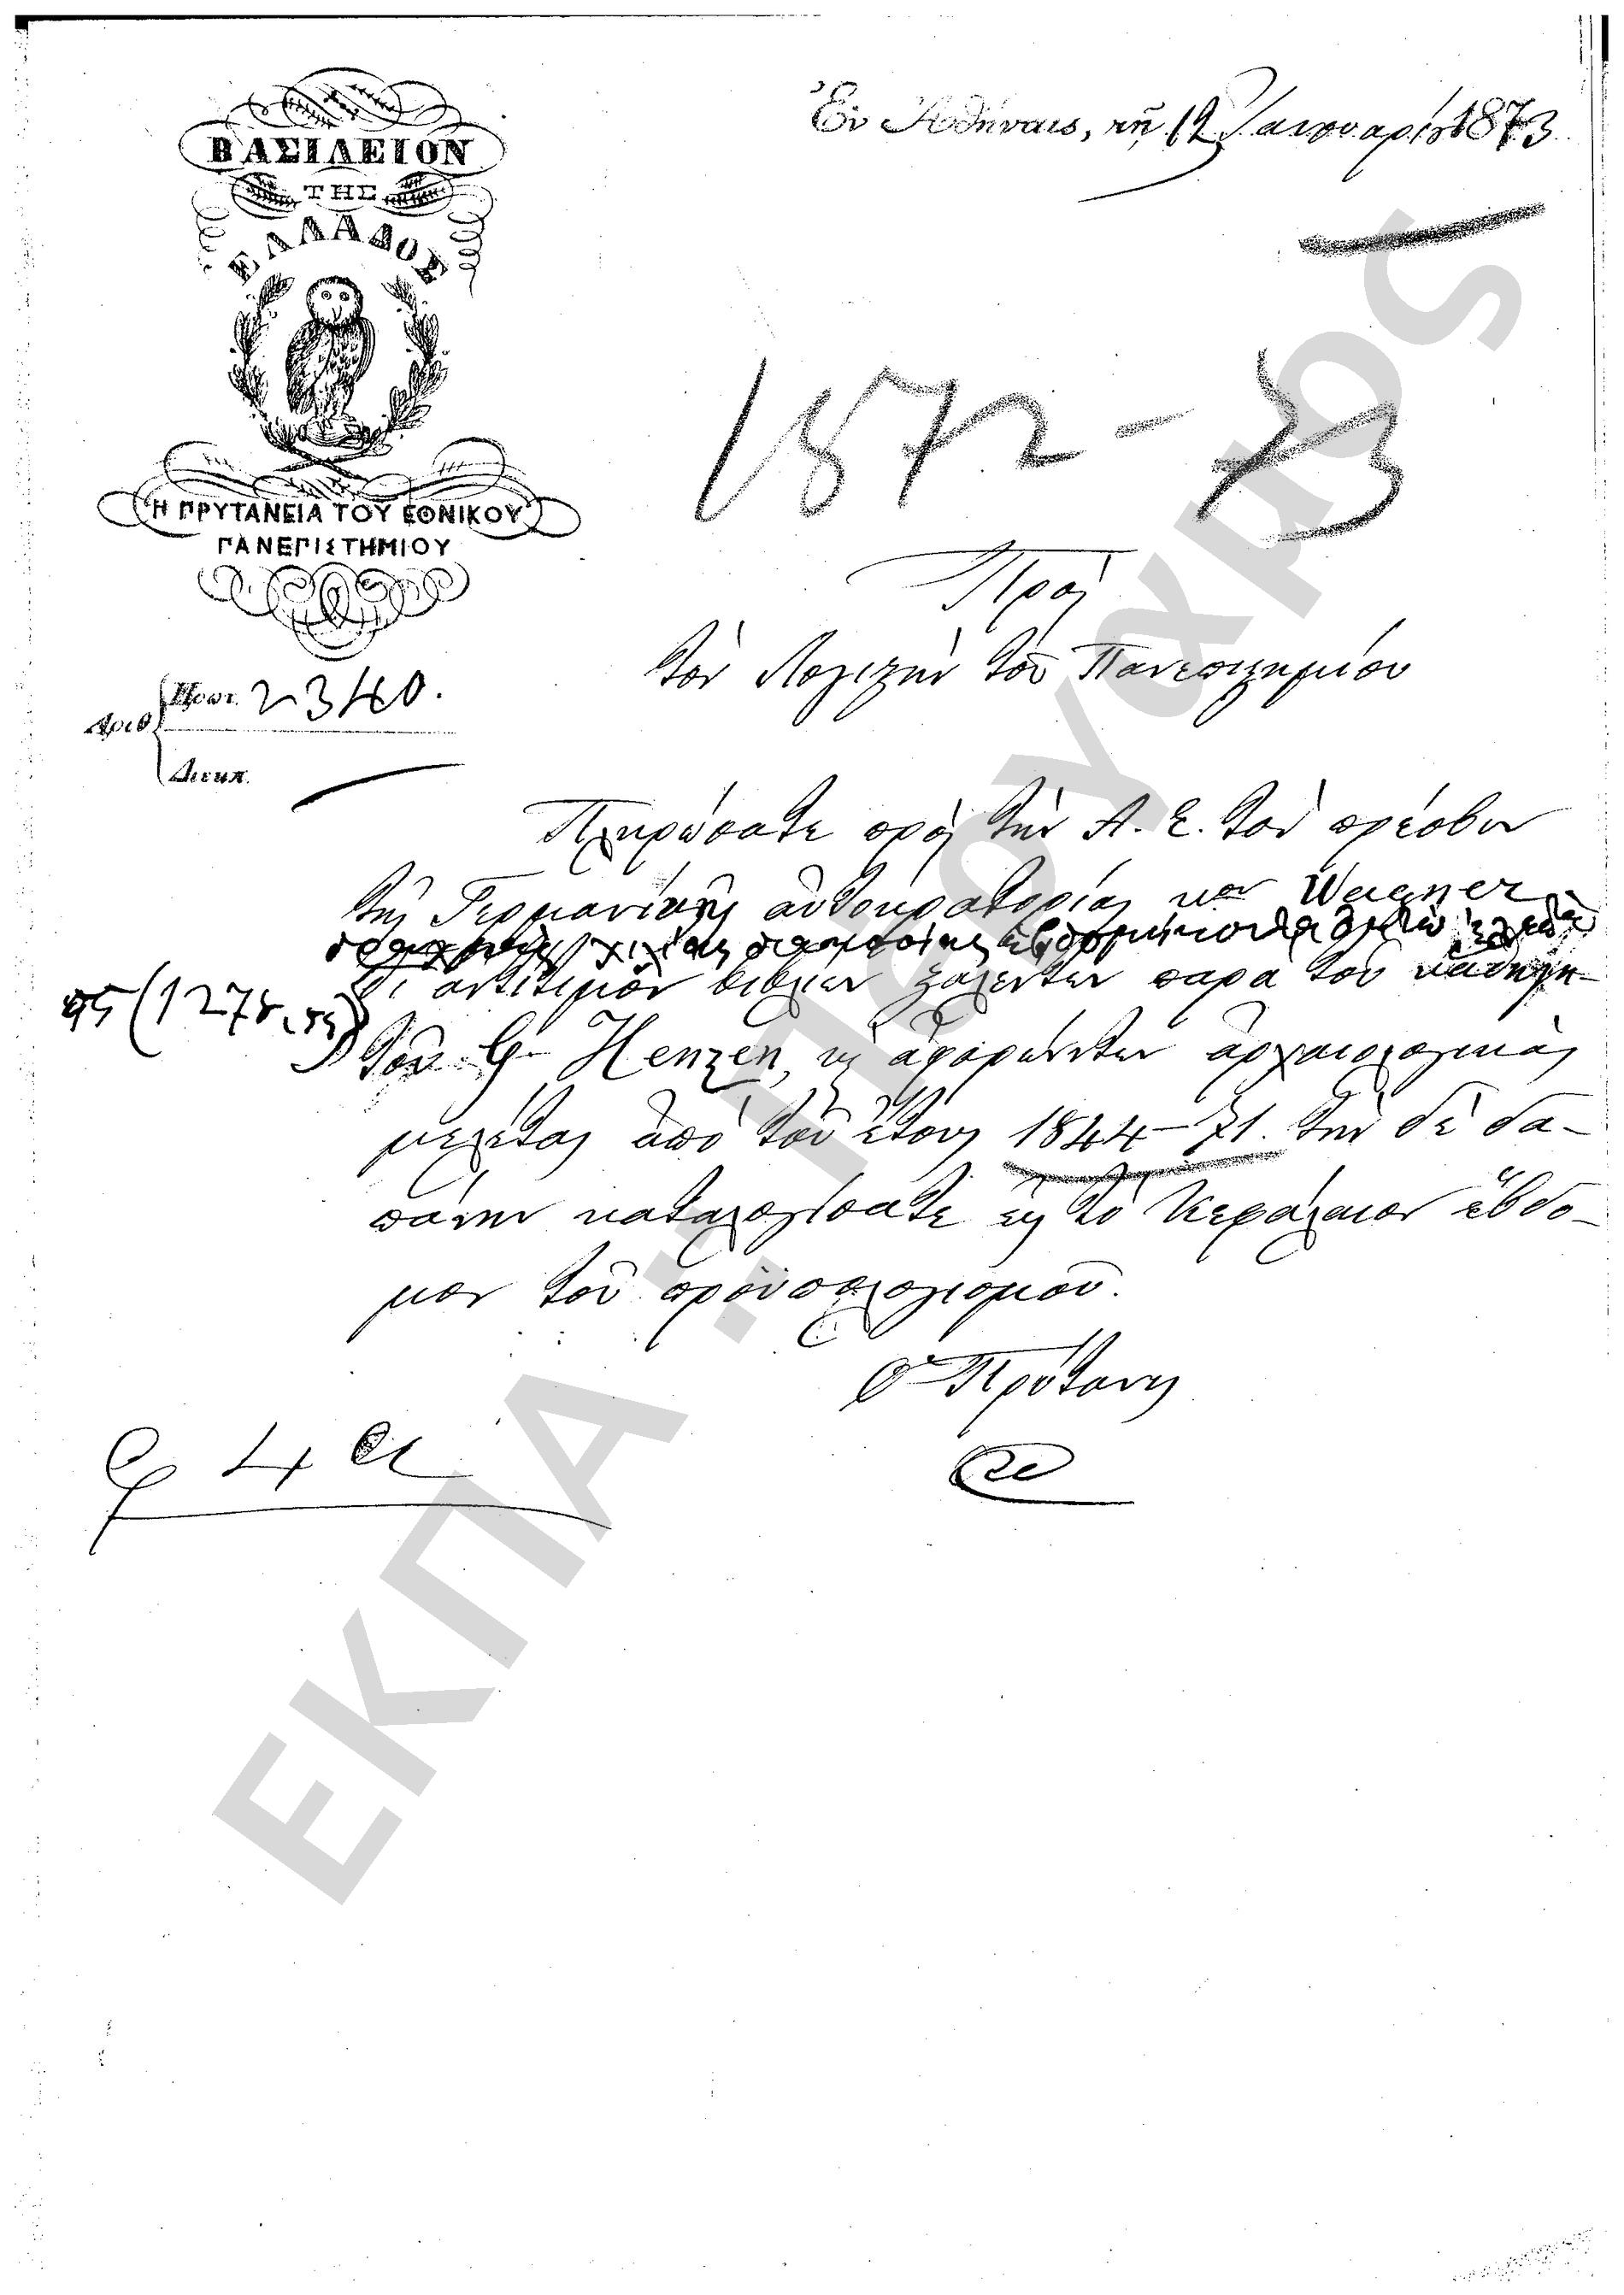 ΒΑΣΙΛΕΙΟΝ
ΤΗΣ
ΕΛΛΑΔΟΣ
Η ΠΡΥΤΑΝΕΙΑ ΤΟΥ ΕΘΝΙΚΟΥ
ΠΑΝΕΠΙΣΤΗΜΙΟΥ
Ἀριθ.
Πρωτ. 2340.
Διεκπ.
Ἐν Ἀθήναις, τῇ 12 Ἰανουαρίου 1873
1872-73
Πρὸς
τὸν Λογιστὴν τοῦ Πανεπιστημίου
Πληρώσατε πρὸς τὴν Α. Ε. τὸν πρέσβυν
τῆς Γερμανικῆς αὐτοκρατορίας κον Wagner
δραχμὰς χιλίας διακοσίας ἑβδομήκοντα ὀκτὼ
ἀντίτιμον βιβλίων σταλέντων παρὰ τοῦ καθηγη-
(1278
τοῦ G Henzen, εἰς ἀφορώντων ἀρχαιολογικὰς
μελέτας ἀπὸ τοῦ ἔτους 1844-71. τὴν δὲ δα-
πάνην καταλογίσατε εἰς τὸ Κεφάλαιον ἕβδο-
μον τοῦ προϋπολογισμοῦ.
Ὁ Πρύτανις
ΕΚΠΑ - Πέργαμος